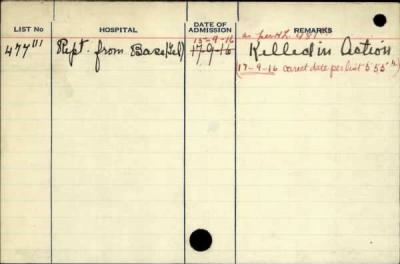 LIST NO
HOSPITAL
DATE OF
ADMISSION
REMARKS
13-9-16
as per H.L. 481
477"'
Rept. from Base (Tel)
17-9-16
Killed in Action
(17-9-16 correct date per list 555